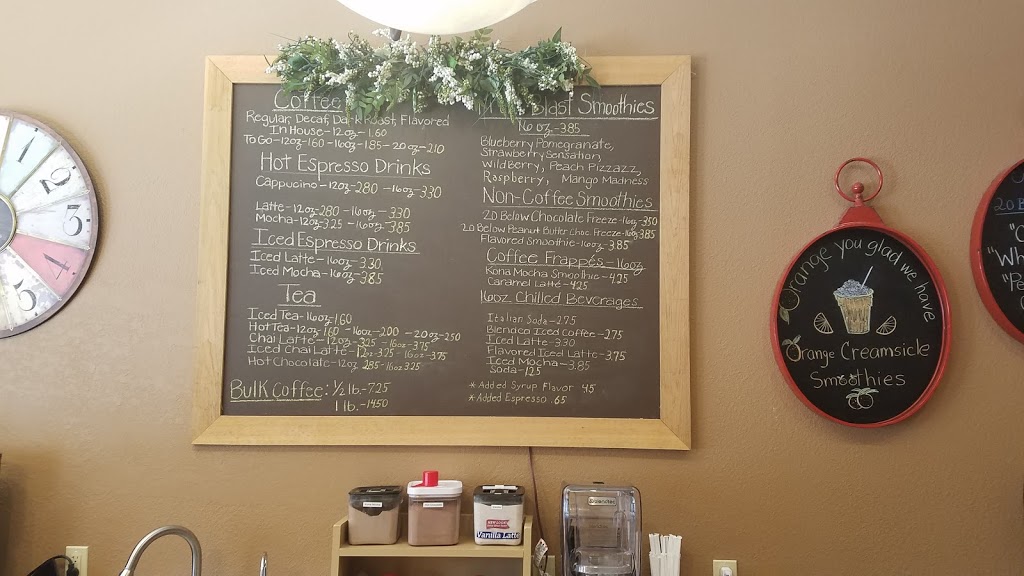 Coffee
Regular, Decaf, Dark Roast, Flavored
In House-12oz-1.60
To Go-12oz-160-16oz-1.85-20oz-210
Hot Espresso Drinks
Cappucino-12oz-280-16oz-330
Latte-12oz-280-16oz-330
Mocha-12oz-325-16oz-385
Iced Espresso Drinks
Iced Latte-16oz-330
Iced Mocha-16oz-385
Tea
Iced Tea-16oz-160
Hot Tea-12oz-160-16oz-200-20oz-250
Chai Latte-12oz-325-16oz-375
Iced Chai Latte-12oz-325-16oz-375
Hot Chocolate-12oz-285-16oz 325
Bulk Coffee: 1/2 lb.-725
1 lb.-1450
Blast Smoothies
16oz.-385
Blueberry Pomegranate,
Strawberry Sensation,
WildBerry, Peach Pizzazz,
Raspberry, Mango Madness
Non-Coffee Smoothies
20 Below Chocolate Freeze-16oz-350
20 Below Peanut Butter Choc. Freeze-16oz 385
Flavored Smoothie-16oz-385
Coffee Frappés-16oz
Kona Mocha Smoothie-425
Caramel Latté-425
16oz Chilled Beverages
Italian Soda-275
Blended Iced Coffee-275
Iced Latte-330
Flavored Iced Latte-375
Iced Mocha-385
Soda-125
*Added Syrup Flavor .45
*Added Espresso .65
Orange you glad we have
Orange Creamsicle
Smoothies
20 B
"C
"Wh
"Pe
1
2
3
4
5
Vanilla Latte